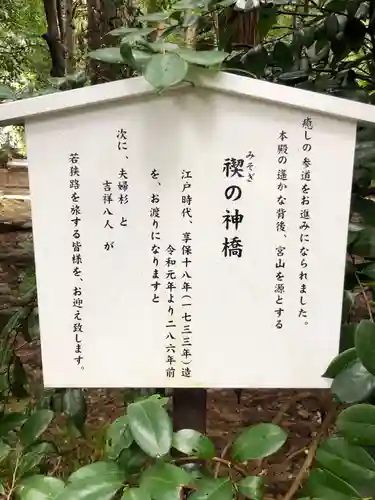 癒しの参道をお進みになられました。
本殿の遥かな背後、宮山を源とする
みそぎ
禊の神橋
江戸時代、享保十八年（一七三三年）造
令和元年より二八六年前
を、お渡りになりますと
次に、夫婦杉と
吉祥八人が
若狭路を旅する皆様を、お迎え致します。